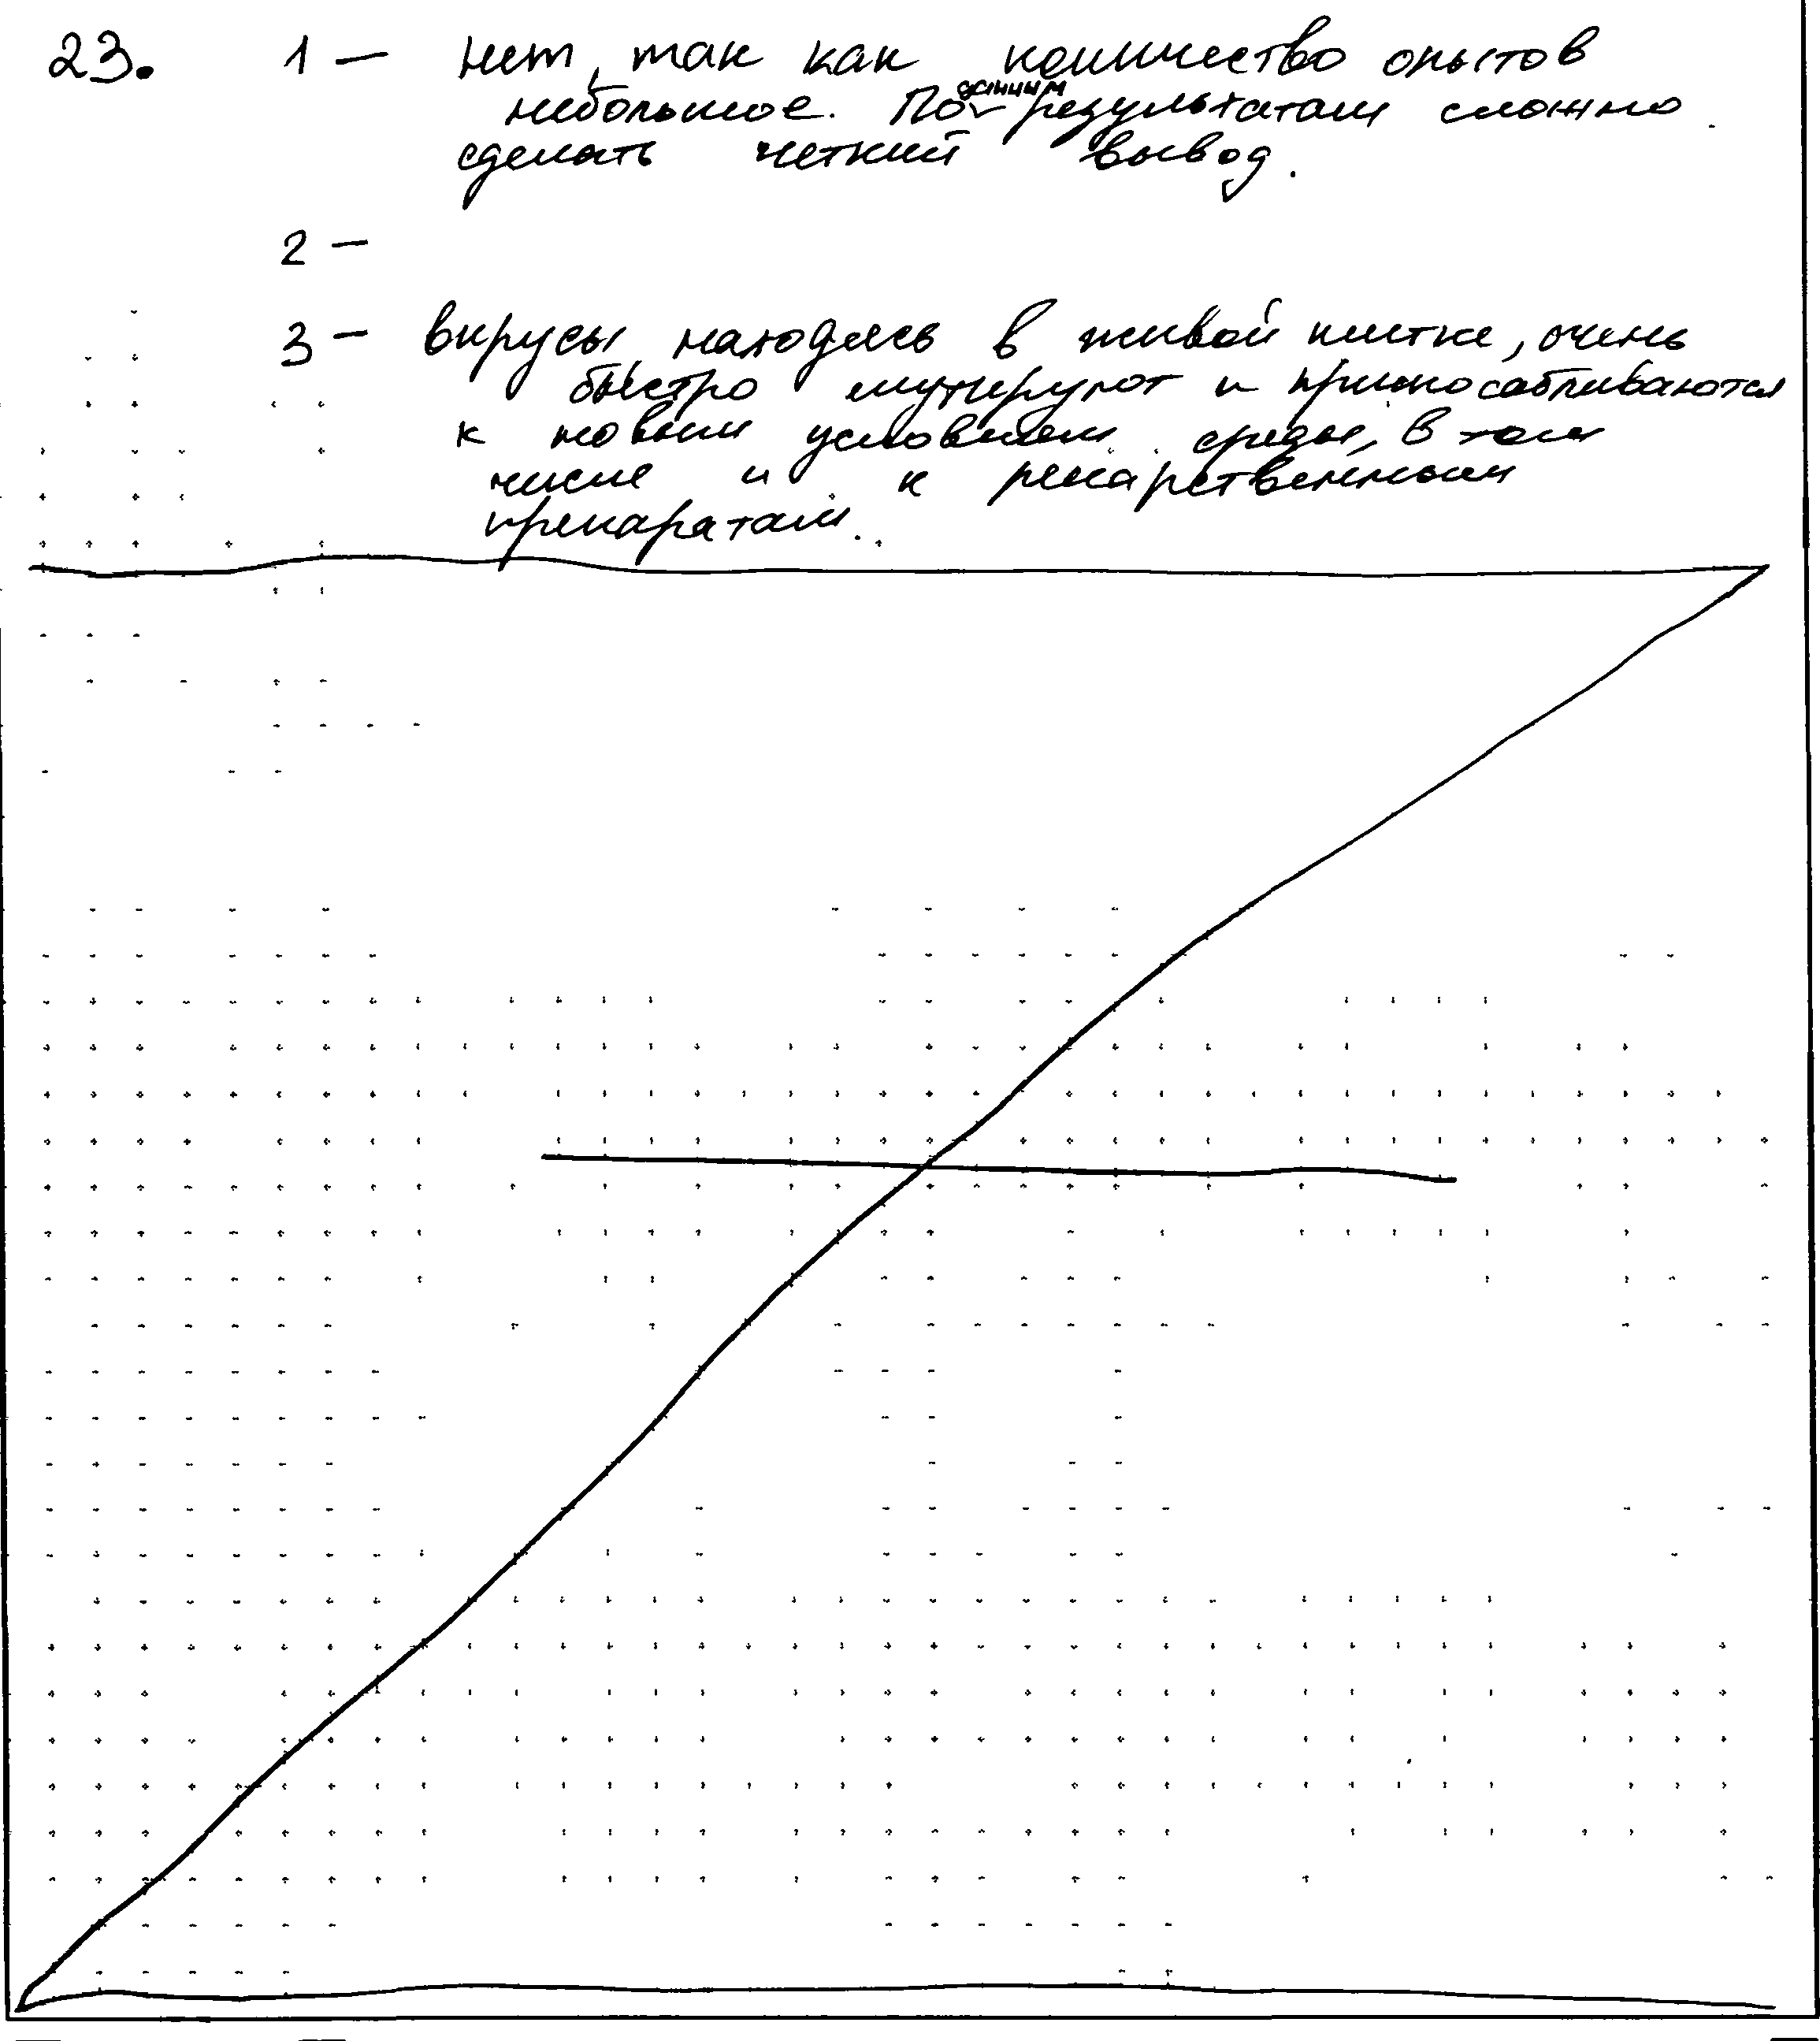 23. 1 — нет, так как количество опытов
небольшое. По данным результатам сложно
сделать четкий вывод.
2 —
3 — вирусы, находясь в живой клетке, очень
быстро мутируют и приспосабливаются
к новым условиям среды, в том
числе и к лекарственным
препаратам.